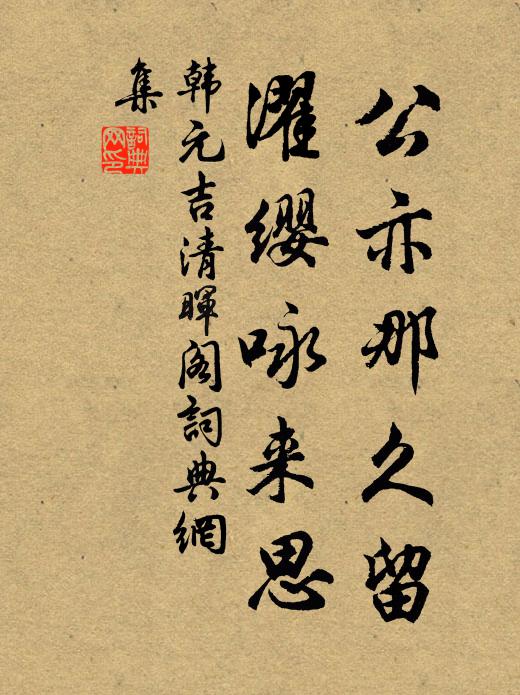 公亦那久留
濯缨咏来思
韩元吉清暉阁詞典網
集
詞典网印